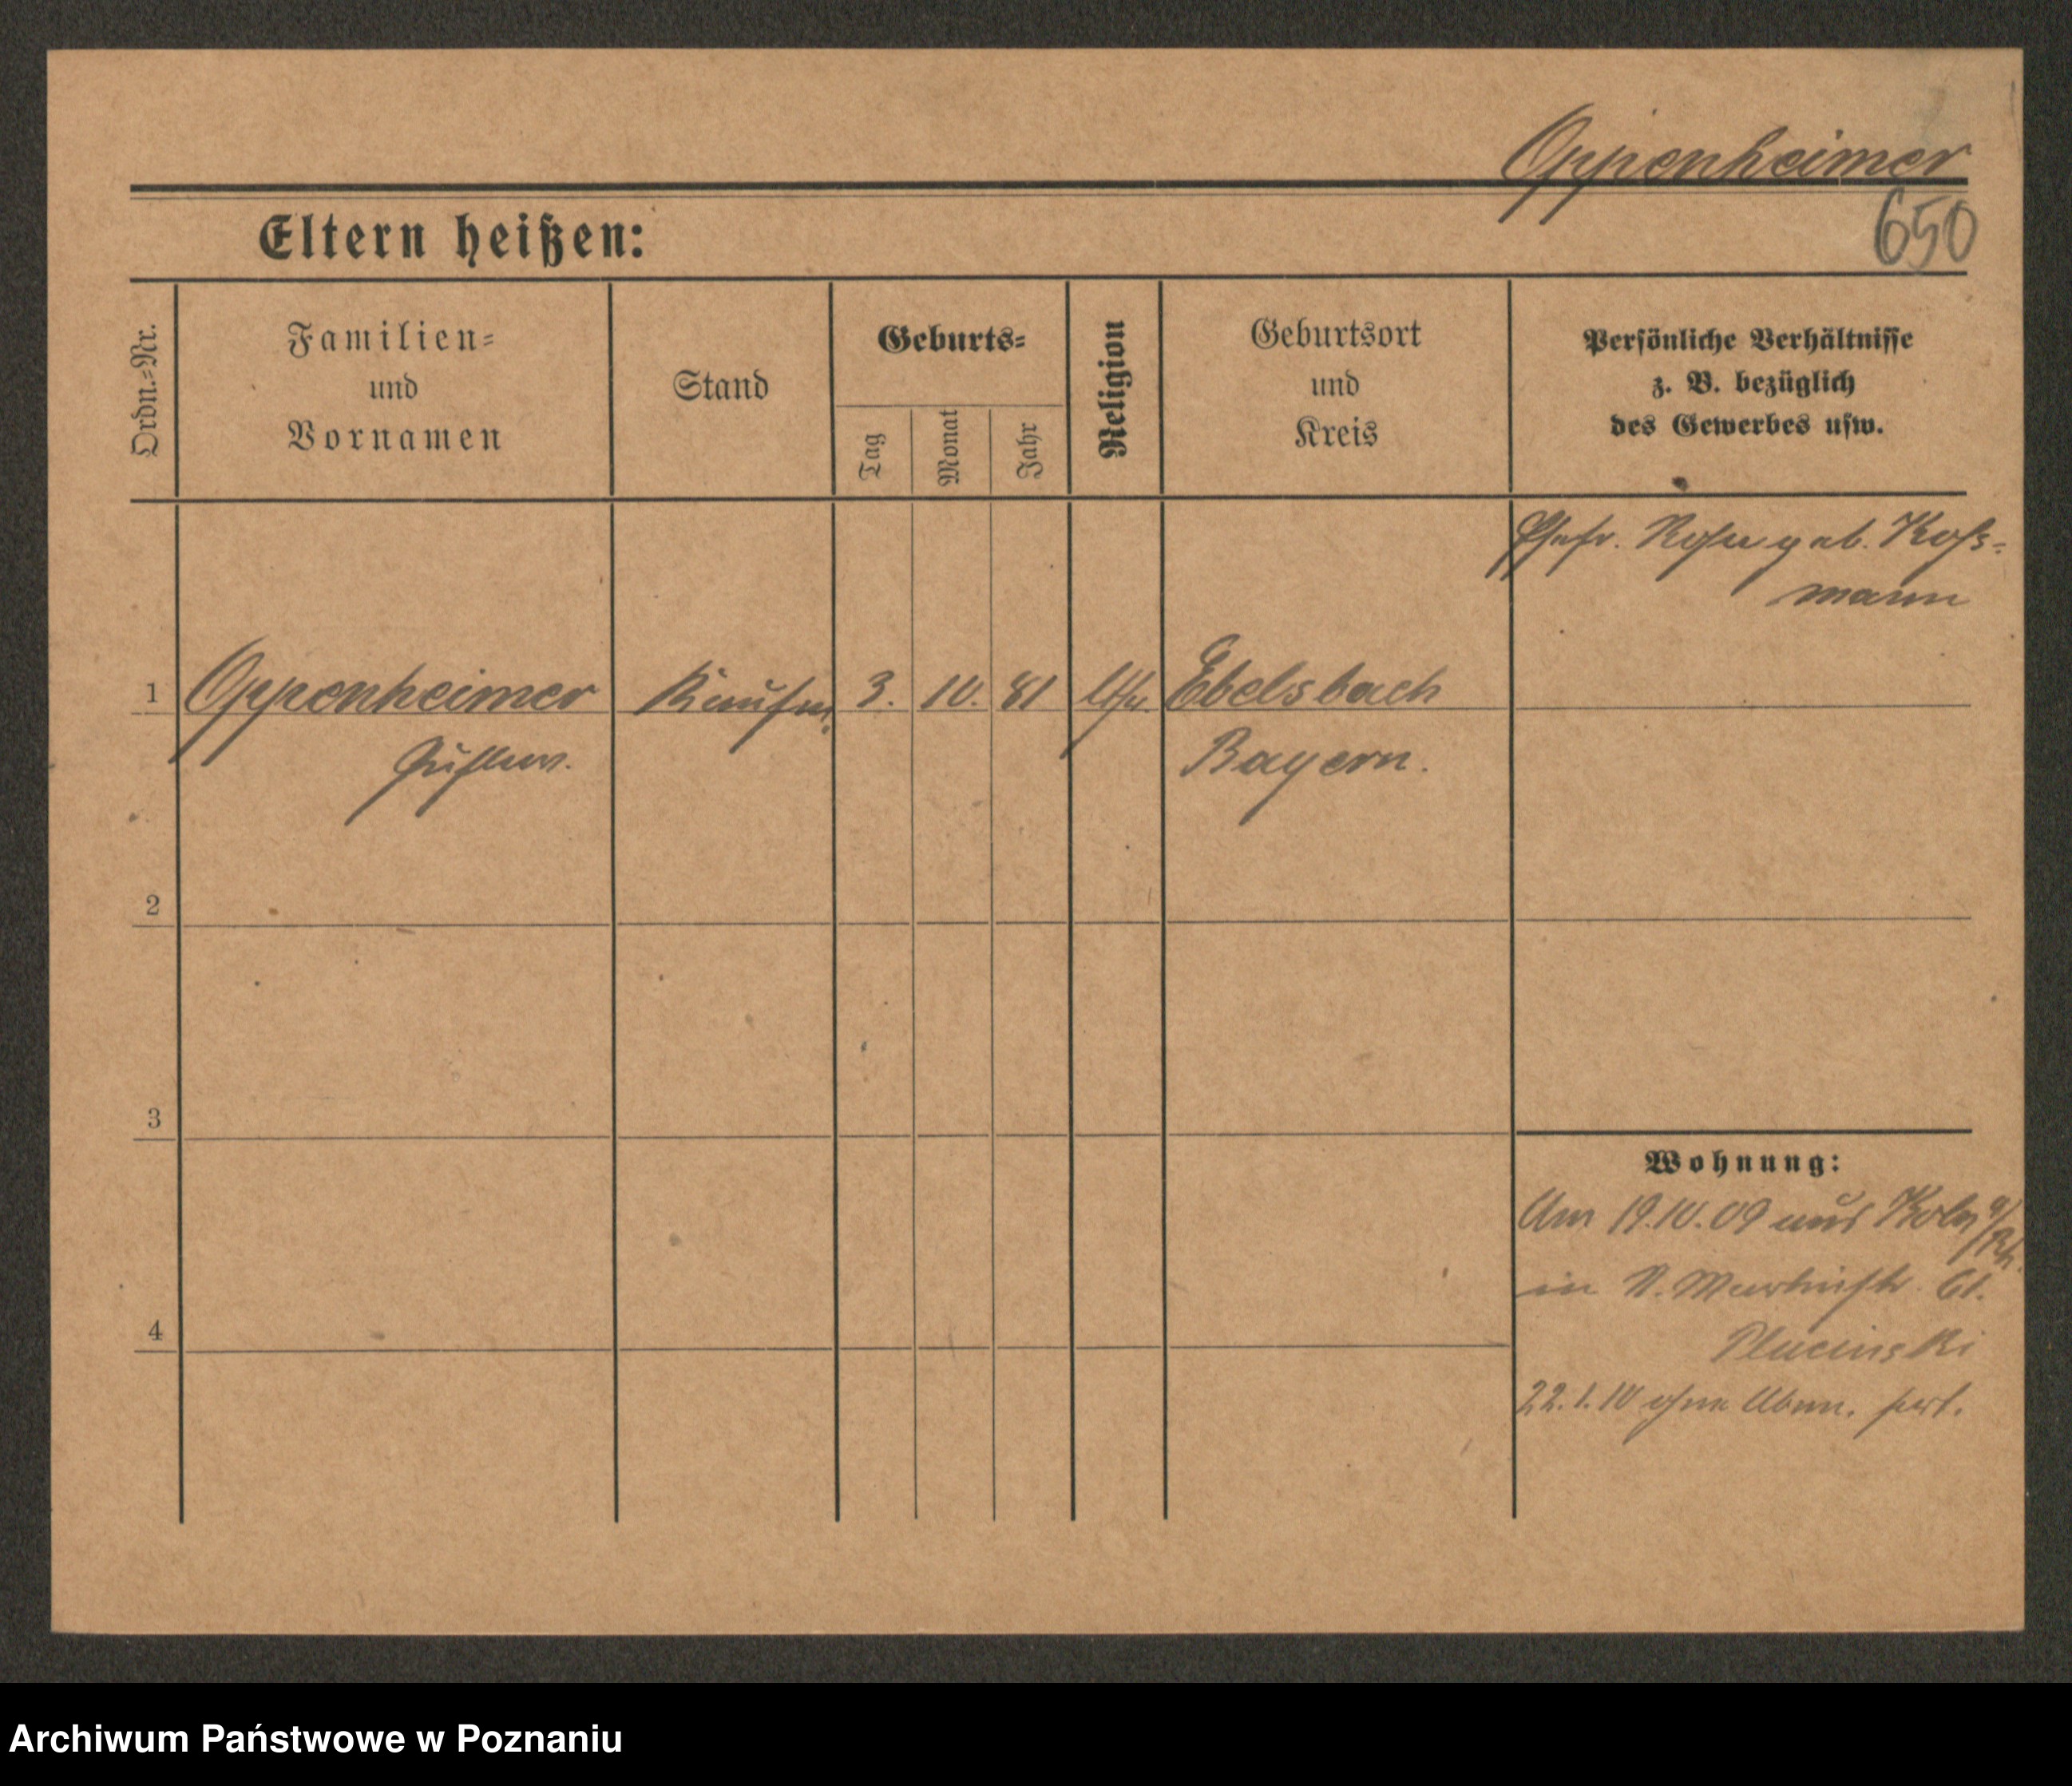 Oppenheimer
650
Eltern heißen:
Ordn.=Nr.
Familien=
und
Vornamen
Stand
Geburts=
Tag
Monat
Jahr
Religion
Geburtsort
und
Kreis
Persönliche Verhältnisse
z. B. bezüglich
des Gewerbes usw.
Ehefr. Rosa geb. Koß-
mann
1
Oppenheimer
Kaufm.
3.
10.
81
Ebelsbach
Gustav.
Bayern.
2
3
4
Wohnung:
Am 19.10.09 aus Köln a/Rh.
in St. Martinstr. 61.
Plucinski
22.1.10 ohne Abm. fort.
Archiwum Państwowe w Poznaniu